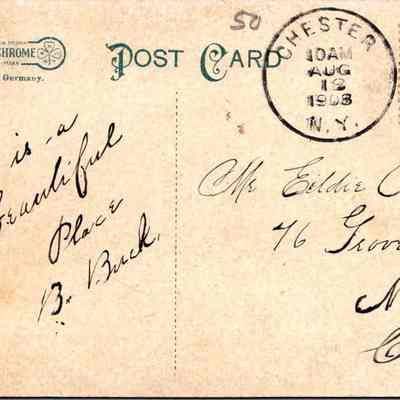 CHROME
Germany.
POST CARD
50
CHESTER
10 AM
AUG
12
1908
N.Y.
is a
Beautiful
Place
B. Buck.
Mr Eddie
76 Grove